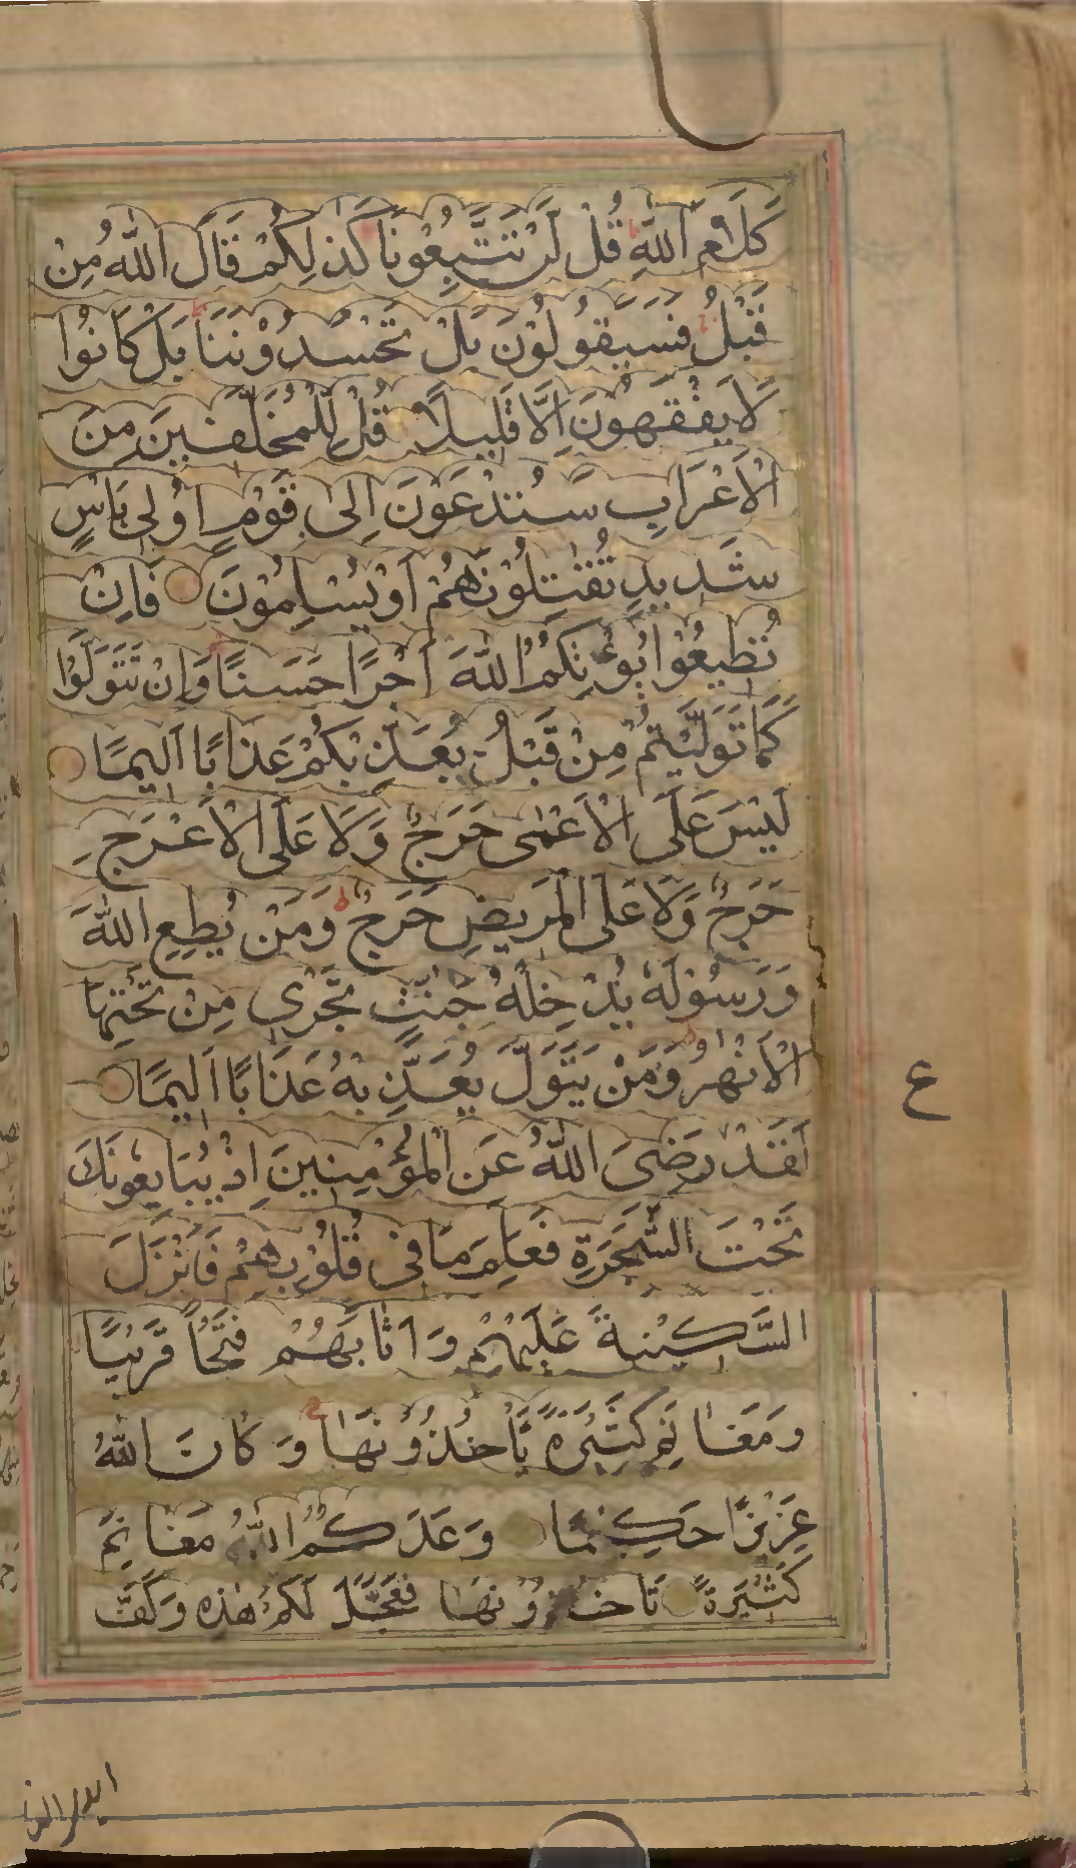 كَلَامَ اللّٰهِ قُلْ لَنْ تَتَّبِعُونَا كَذٰلِكُمْ قَالَ اللّٰهُ مِنْ
قَبْلُ فَسَيَقُولُوْنَ بَلْ تَحْسُدُوْنَنَا بَلْ كَانُوْا
لَا يَفْقَهُوْنَ اِلَّا قَلِيلًا قُلْ لِلْمُخَلَّفِينَ مِنَ
الْاَعْرَابِ سَتُدْعَوْنَ اِلٰى قَوْمٍ اُولِي بَاْسٍ
شَدِيدٍ تُقٰتِلُوْنَهُمْ اَوْ يُسْلِمُوْنَ فَاِنْ
تُطِيعُوْا يُؤْتِكُمُ اللّٰهُ اَجْرًا حَسَنًا وَاِنْ تَتَوَلَّوْا
كَمَا تَوَلَّيْتُمْ مِنْ قَبْلُ يُعَذِّبْكُمْ عَذَابًا اَلِيمًا
لَيْسَ عَلَى الْاَعْمٰى حَرَجٌ وَلَا عَلَى الْاَعْرَجِ
حَرَجٌ وَلَا عَلَى الْمَرِيضِ حَرَجٌ وَمَنْ يُطِعِ اللّٰهَ
وَرَسُوْلَهٗ يُدْخِلْهُ جَنّٰتٍ تَجْرِي مِنْ تَحْتِهَا
الْاَنْهٰرُ وَمَنْ يَتَوَلَّ يُعَذِّبْهُ عَذَابًا اَلِيمًا
لَقَدْ رَضِيَ اللّٰهُ عَنِ الْمُؤْمِنِينَ اِذْ يُبَايِعُونَكَ
تَحْتَ الشَّجَرَةِ فَعَلِمَ مَا فِي قُلُوْبِهِمْ فَاَنْزَلَ
السَّكِيْنَةَ عَلَيْهِمْ وَاَثَابَهُمْ فَتْحًا قَرِيْبًا
وَمَغَانِمَ كَثِيْرَةً يَّاْخُذُوْنَهَا وَكَانَ اللّٰهُ
عَزِيْزًا حَكِيْمًا وَعَدَكُمُ اللّٰهُ مَغَانِمَ
كَثِيْرَةً تَاْخُذُوْنَهَا فَعَجَّلَ لَكُمْ هٰذِهٖ وَكَفَّ
ع